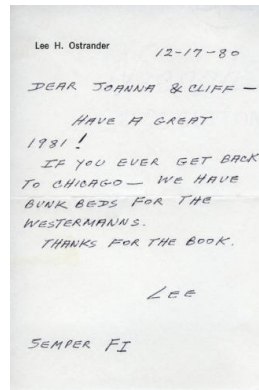 Lee H. Ostrander
12-17-80
DEAR JOANNA & CLIFF —
HAVE A GREAT
1981!
IF YOU EVER GET BACK
TO CHICAGO — WE HAVE
BUNK BEDS FOR THE
WESTERMANNS.
THANKS FOR THE BOOK.
LEE
SEMPER FI